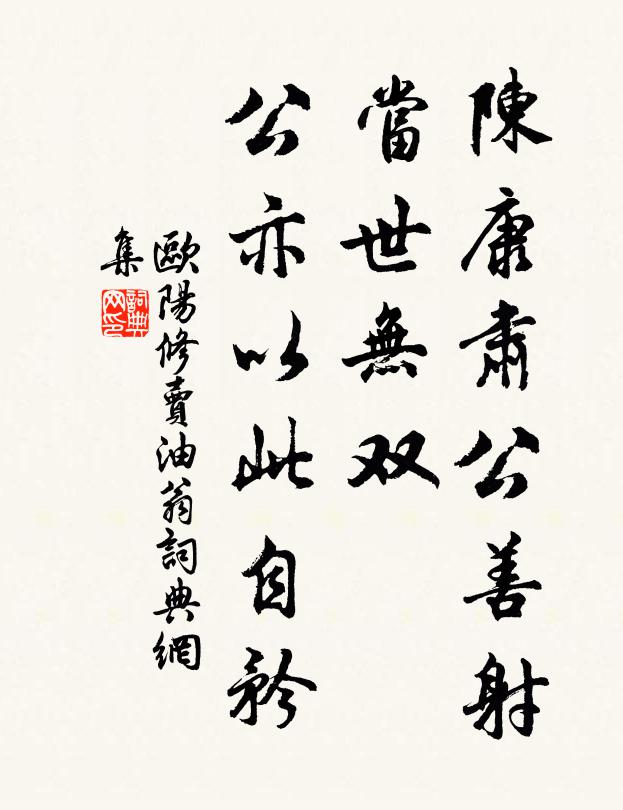 陳康肅公善射
當世無双
公亦以此自矜
歐陽修賣油翁詞典網
集
詞典网印